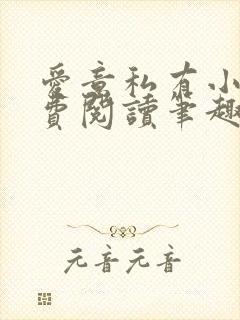 愛意私有小
費閱讀筆趣
元音元音